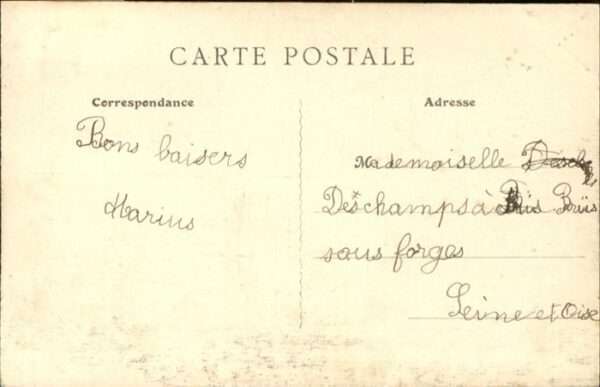 CARTE POSTALE
Correspondance
Bons baisers
Marius
Adresse
Mademoiselle
Deschamps à Briis
sous forges
Seine et Oise